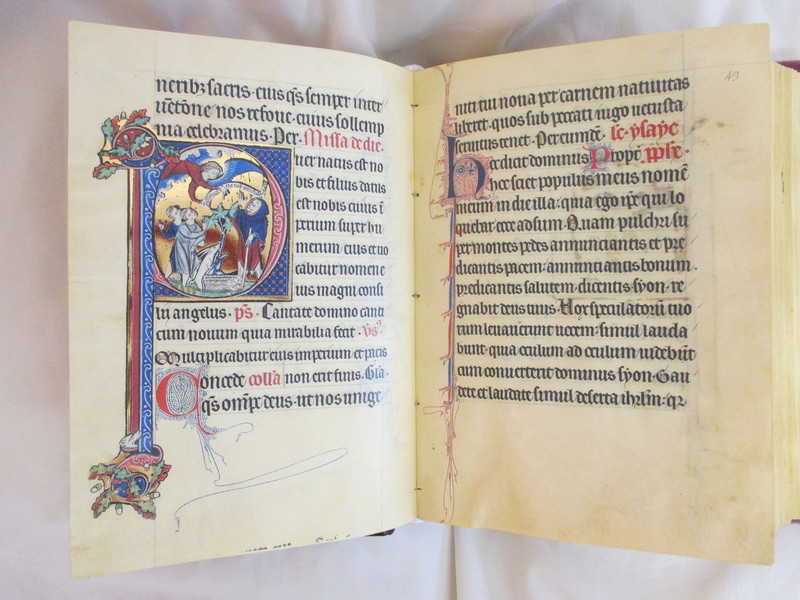 neribꝫ sacris · cuius qs semper inter
uētōne nos refoue · cuius sollemp
nia celebramus · Per · Missa de die ·
Puer natus est no
bis et filius datus
est nobis cuius ī
perium super hu
merum eius et uo
cabitur nomen e
ius magni consi
lii angelus · ps · Cantate domino canti
cum nouum quia mirabilia fecit · vs
Multiplicabitur eius imperium et pacis
non erit finis · Gla ·
Concede collā
qs omps deus · ut nos unige
43
niti tui noua per carnem natiuitas
liberet · quos sub peccati iugo uetusta
seruitus tenet · Per eundē · lc · ysaye
Hec dicit dominus Propt̄ · pphe ·
hec sciet populus meus nomē
meum in die illa : quia ego ipe qui lo
quebar ecce adsum · Quam pulchri su
per montes pedes annunciantis et pre
dicantis pacem : annunciantis bonum ·
Predicantis salutem · dicentis syon · re
gnabit deus tuus · Uox speculatorū tuo
rum leuauerunt uocem : simul lauda
bunt · quia oculum ad oculum uidebūt
cum conuerterit dominus syon · Gau
dete et laudate simul deserta ihrlm : qr